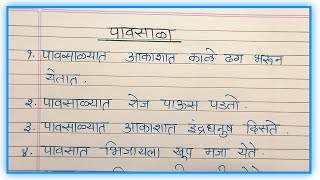 पावसाळा
१. पावसाळ्यात आकाशात काळे ढग भरून
येतात.
२. पावसाळ्यात रोज पाऊस पडतो.
३. पावसाळ्यात आकाशात इंद्रधनुष दिसते.
४. पावसात भिजायला खूप मजा येते.